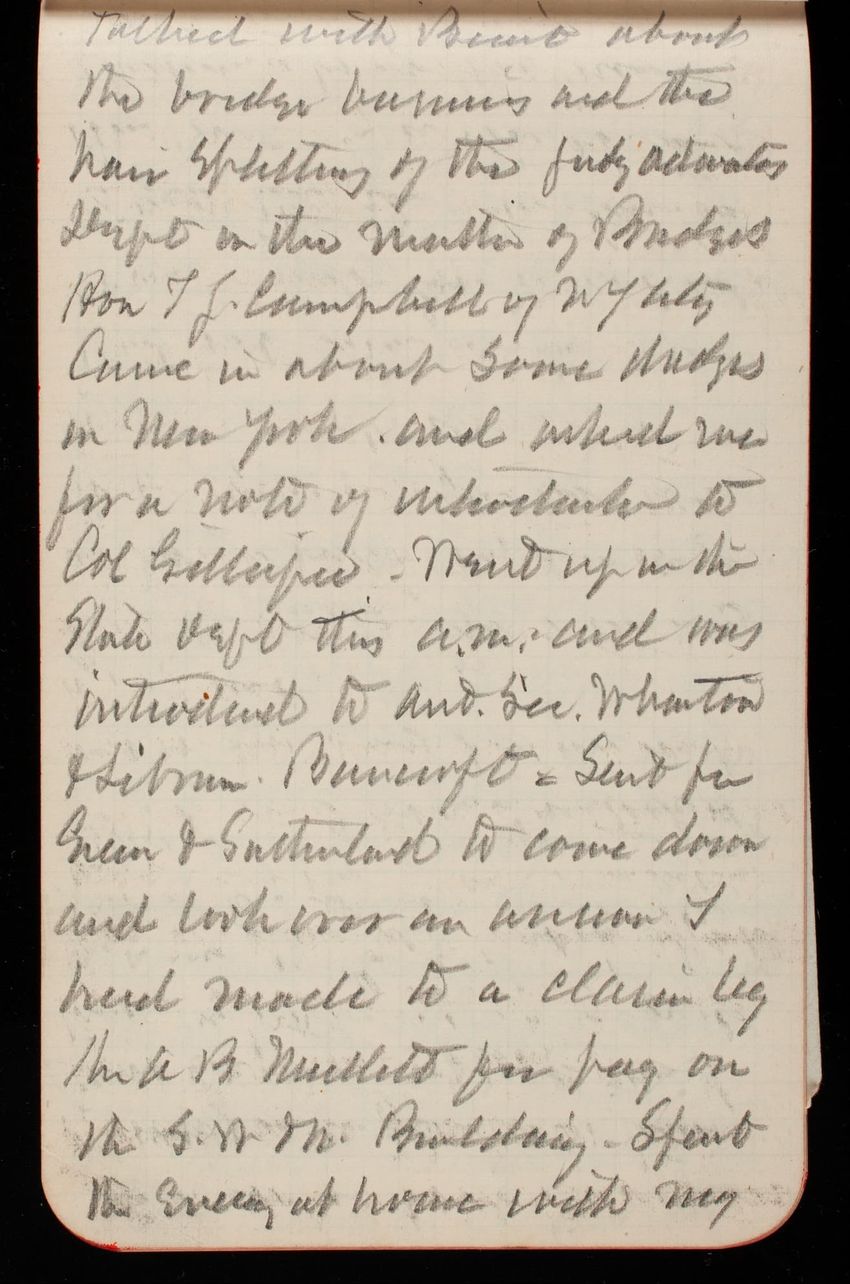 Talked with about
the bridge business and the
hair splitting of the Judg advocates
Dept in the matter of Bridges
Hon T J. Campbell of N Y City
Came in about some dredges
in New York . and asked me
for a note of introduction to
Col Gillespie - Went up in the
State Dept this a.m. and was
introduced to Asst. Sec. Wharton
& Librn. Bancroft = Sent for
Green & Sutherland to come down
and look over an answer I
had made to a claim by
Mr A B Mullett for pay on
the S. W & N. Building - Spent
the Eveng at home with my